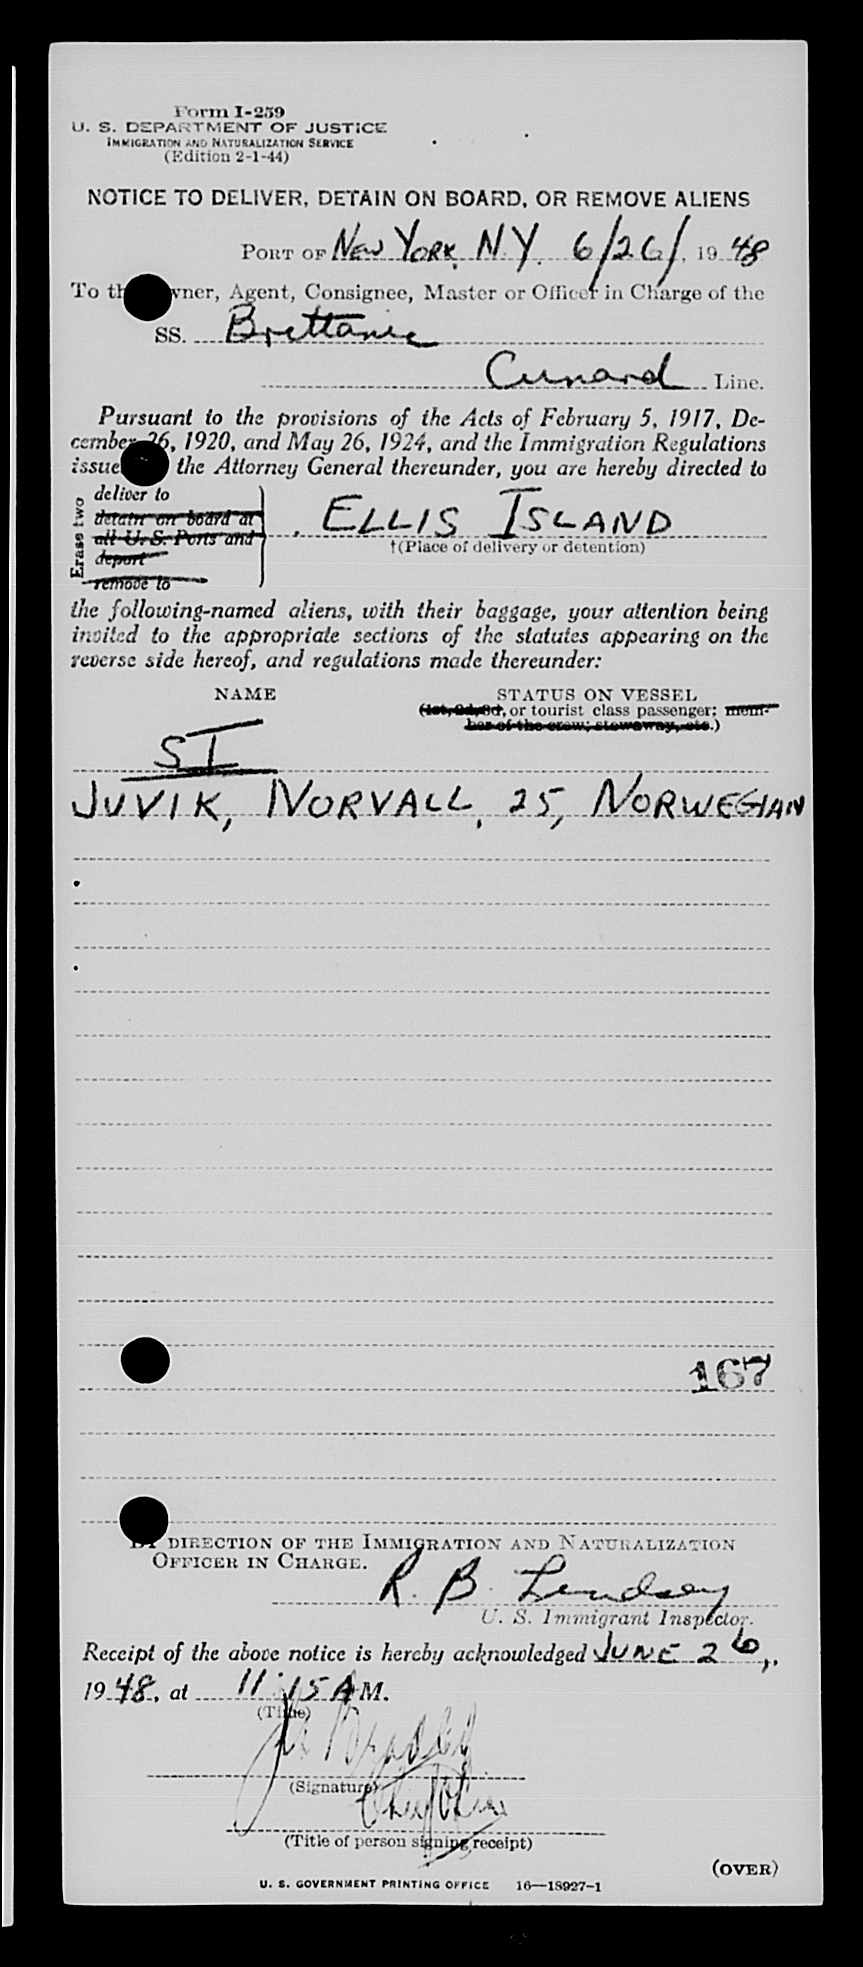 Form I-259
U. S. DEPARTMENT OF JUSTICE
IMMIGRATION AND NATURALIZATION SERVICE
(Edition 2-1-44)
NOTICE TO DELIVER, DETAIN ON BOARD, OR REMOVE ALIENS
PORT OF New York, N.Y. 6/26/, 1948
To th wner, Agent, Consignee, Master or Officer in Charge of the
SS. Brittanic
Cunard Line.
Pursuant to the provisions of the Acts of February 5, 1917, De-
cember 26, 1920, and May 26, 1924, and the Immigration Regulations
issue the Attorney General thereunder, you are hereby directed to
Erase two
deliver to
detain on board at
all U. S. Ports and
deport
remove to
ELLIS ISLAND
†(Place of delivery or detention)
the following-named aliens, with their baggage, your attention being
invited to the appropriate sections of the statutes appearing on the
reverse side hereof, and regulations made thereunder:
NAME STATUS ON VESSEL
(1st, 2d, 3d, or tourist class passenger; mem-
ber of the crew; stowaway, etc.)
SI
JUVIK, NORVALL, 25, NORWEGIAN
167
BY DIRECTION OF THE IMMIGRATION AND NATURALIZATION
OFFICER IN CHARGE.
R. B. Lindsay
U. S. Immigrant Inspector.
Receipt of the above notice is hereby acknowledged JUNE 26,
1948, at 11:15 AM.
(Time)
Bradley
(Signature)
(Title of person signing receipt)
(OVER)
U. S. GOVERNMENT PRINTING OFFICE 16—18927-1